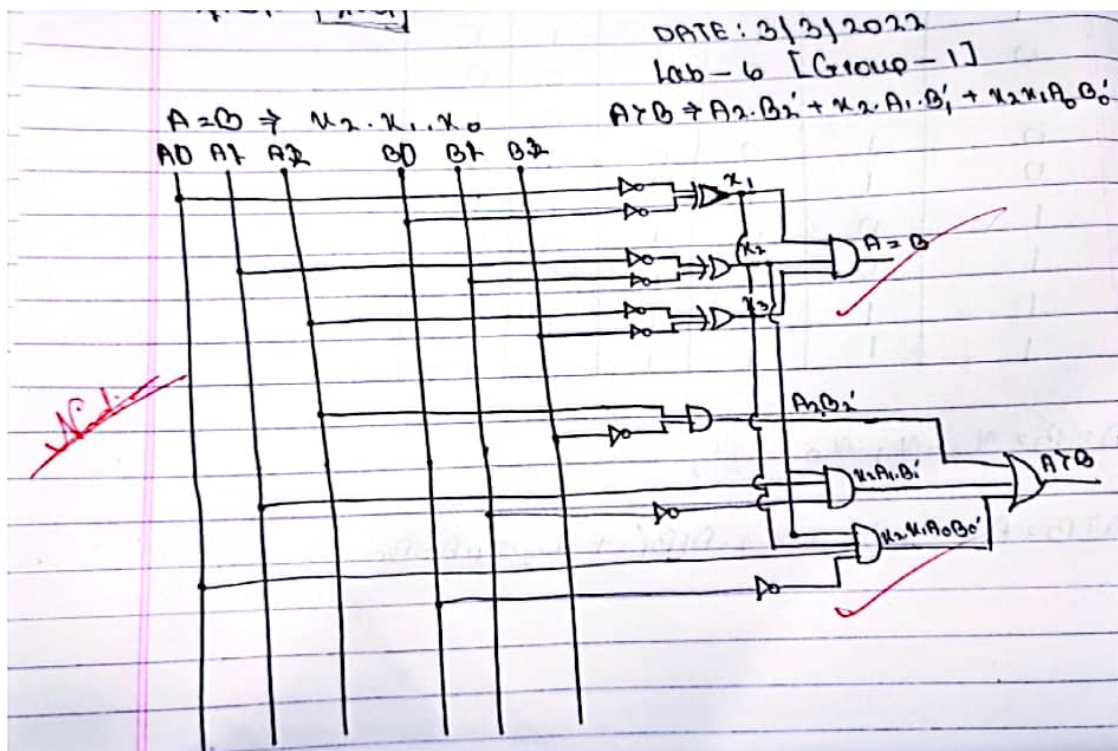 DATE: 3/3/2022
Lab-6 [Group-1]
A=B ⇒ x2.x1.x0
A>B ⇒ A2.B2' + x2.A1.B1' + x2x1A0B0'
A0 A1 A2 B0 B1 B2
x1
x2
A = B
x3
A2B2'
A>B
x2A1.B1'
x2x1A0B0'